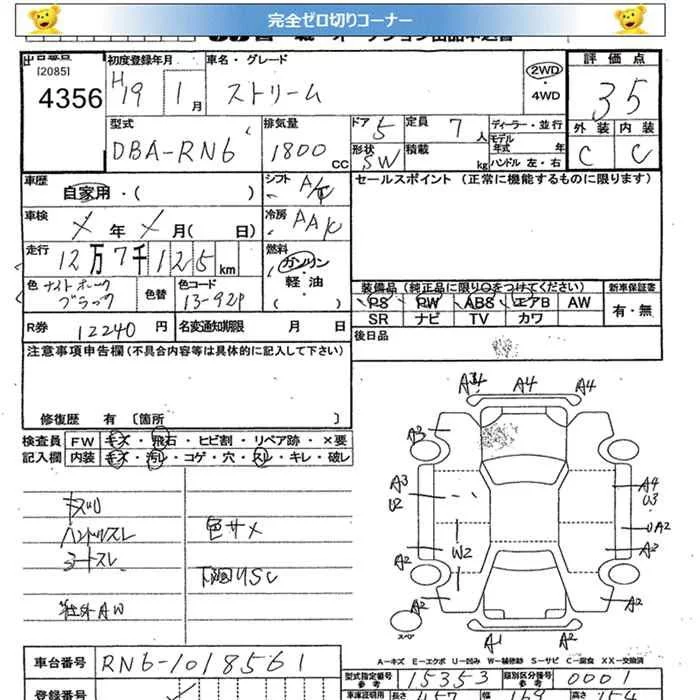 完全ゼロ切りコーナー
[2085]
4356
初度登録年月
H19 1月
車名・グレード
ストリーム
2WD
・4WD
評価点
3.5
外装 内装
C C
型式
DBA-RN6
排気量
1800 CC
ドア 5
形状 SW
定員 7人
積載 kg
ディーラー・並行
モデル年式 年
ハンドル 左・右
車歴
自家用・( )
シフト
車検
年 月( 日)
冷房
AAC
走行
12万7千125km
燃料
ガソリン
軽・油
( )
色 ナイトホーク
ブラック
色替
色コード
B-92P
R券 12240円
名変通知期限 月 日
セールスポイント (正常に機能するものに限ります)
装備品(純正品に限り○をつけてください)
PS PW ABS エアB AW
SR ナビ TV カワ
新車保証書
有・無
後日品
注意事項申告欄(不具合内容等は具体的に記入して下さい)
修復歴 有 〔箇所 〕
検査員記入欄
FW キズ・飛石・ヒビ割・リペア跡・×要
内装 キズ・汚レ・コゲ・穴・スレ・キレ・破レ
ハンドルスレ
シートスレ
社外AW
色サメ
下回りサビ
A4 A4
A3
A3
U2
A4
U3
UA2
A2
W2
A2
A2
A2
A1 A2
スペア
A-キズ E-エクボ U-凹み W-補修跡 S-サビ C-腐食 XX-交換済
車台番号 RN6-1018561
登録番号
型式指定番号 参考 15353
類別区分番号 参考 0001
車庫証明用 長さ 457 幅 169 高さ 154